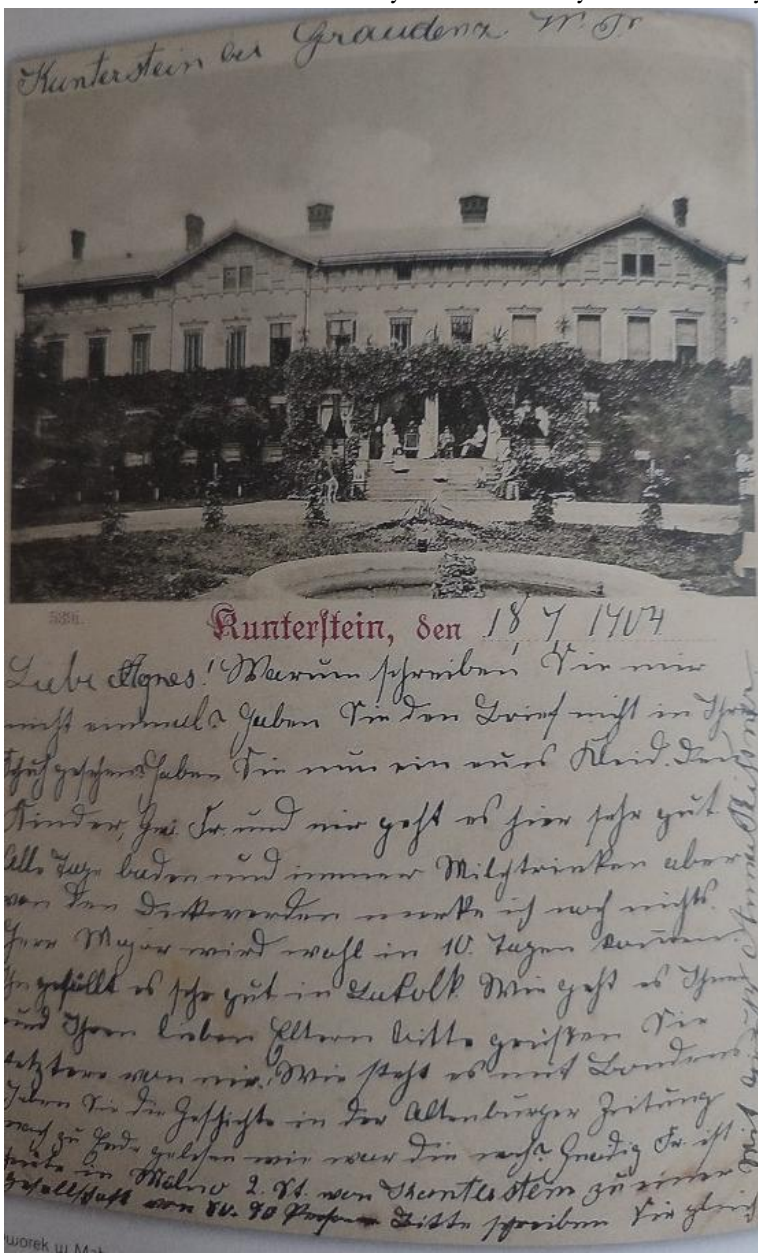 Kunterstein bei Graudenz W. Pr.
5396.
Kunterstein, den 18 7 1904
Liebe Agnes! Warum schreiben Sie mir
nicht einmal? Haben Sie den Brief nicht in Ihrem
Schuh gesehen? haben Sie nun ein neues Kleid. Den
Kindern, Gn. Fr. und mir geht es hier sehr gut
Alle Tage baden und immer Milchtrinken aber
von den Dickwerden merke ich noch nichts.
Herr Major wird wohl in 10. Tagen kommen.
gefällt es sehr gut in Wie geht es Ihnen
und Ihren lieben Eltern bitte grüßen Sie
letztere von mir. Wie steht es mit
Haben Sie die Geschichte in der Altenburger Zeitung
noch zu Ende gelesen wie war die noch? Gnädig Fr. ist
heute in Mölno 2. St. von Kunterstein zu einer
Gesellschaft von 80-90 Personen Bitte schreiben Sie gleich
Mit Anna
worek w